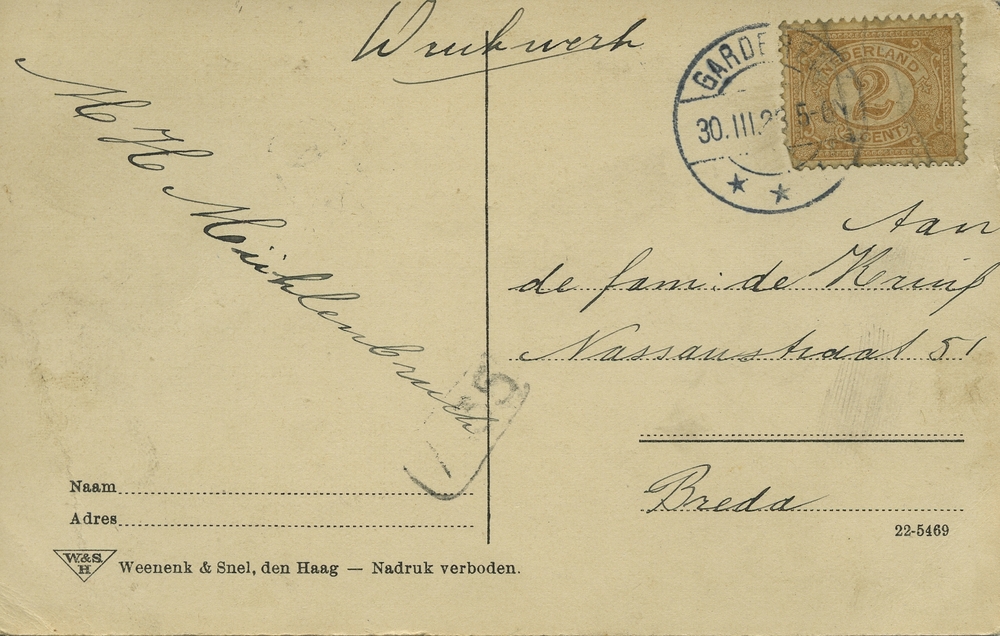 Drukwerk
GARDEREN
30.III.23 5-6N
NEDERLAND
2
CENT
M H Mühlenbruch
Aan
de fam: de Kruijf
Nassaustraat 51
Breda
5
Naam
Adres
22-5469
W&S.
H
Weenenk & Snel, den Haag — Nadruk verboden.